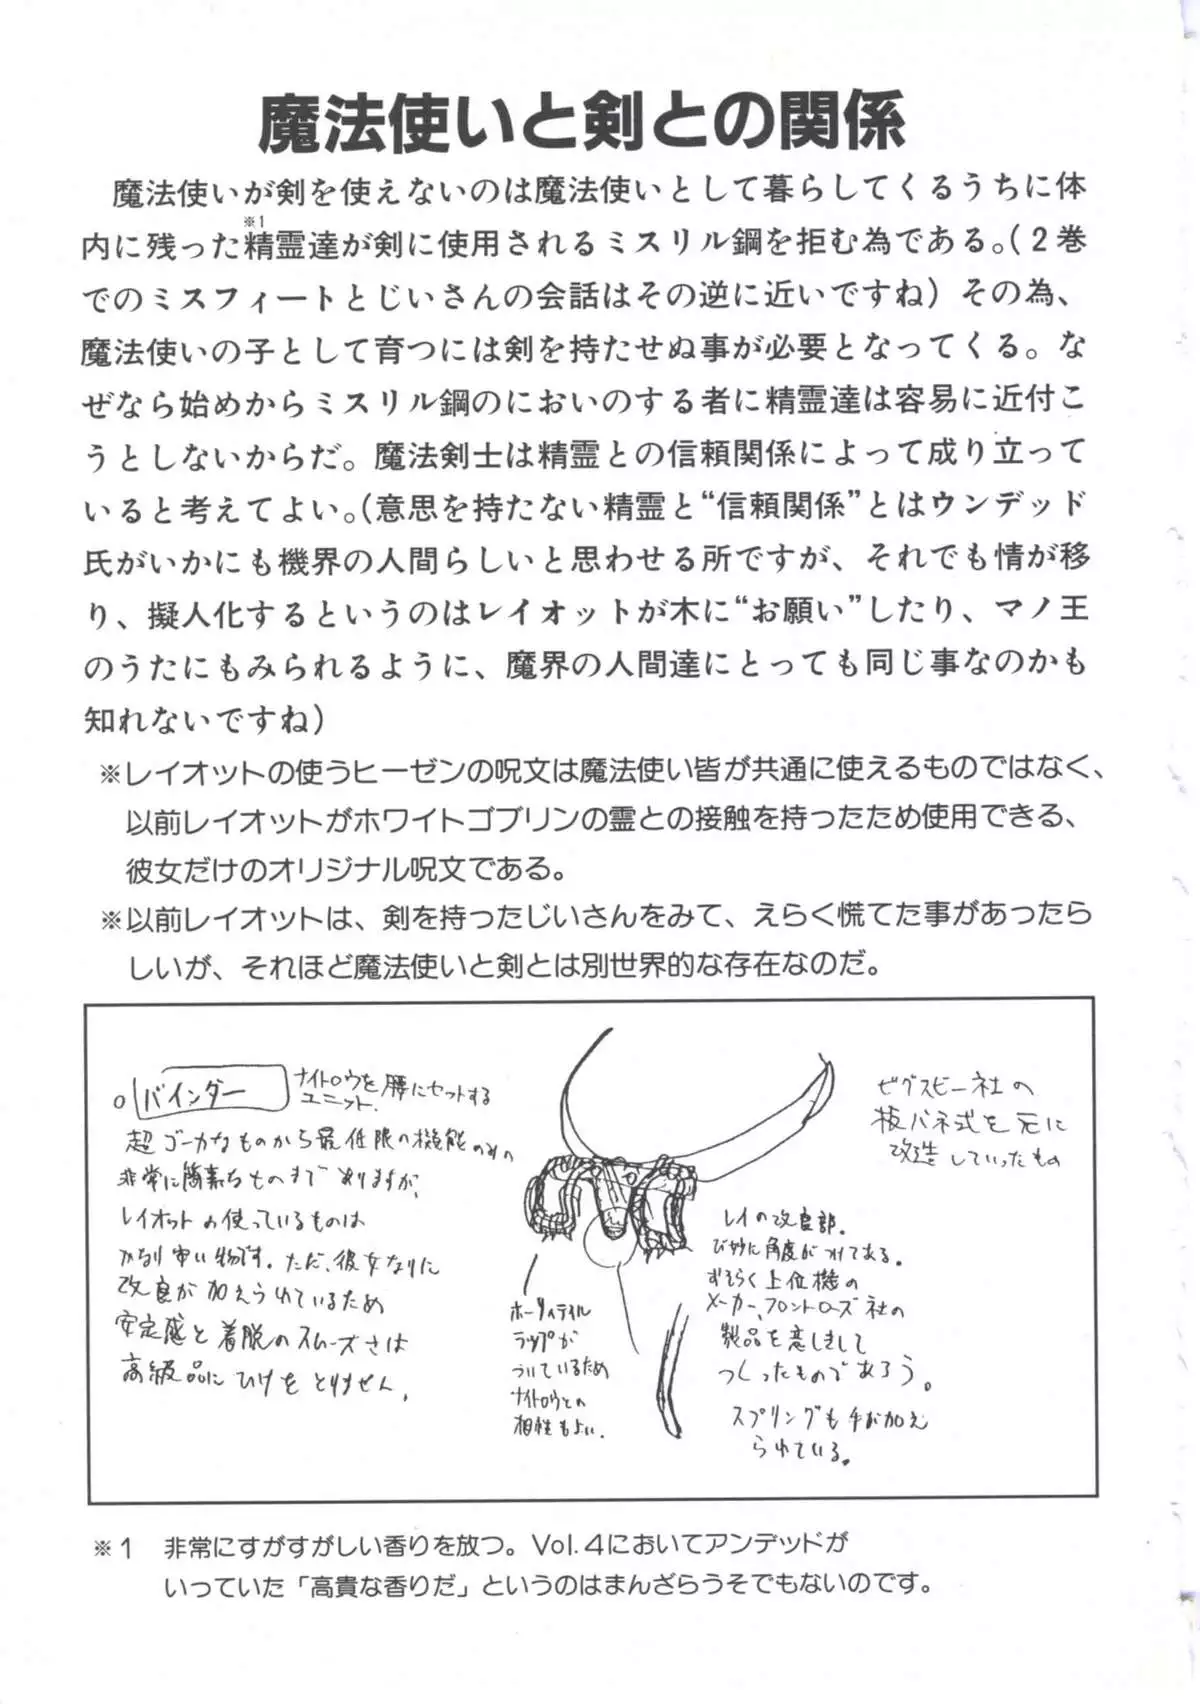 魔法使いと剣との関係
魔法使いが剣を使えないのは魔法使いとして暮らしてくるうちに体
※1
内に残った精霊達が剣に使用されるミスリル鋼を拒む為である。(2巻
でのミスフィートとじいさんの会話はその逆に近いですね)その為、
魔法使いの子として育つには剣を持たせぬ事が必要となってくる。な
ぜなら始めからミスリル鋼のにおいのする者に精霊達は容易に近付こ
うとしないからだ。魔法剣士は精霊との信頼関係によって成り立って
いると考えてよい。(意思を持たない精霊と“信頼関係”とはウンデッド
氏がいかにも機界の人間らしいと思わせる所ですが、それでも情が移
り、擬人化するというのはレイオットが木に“お願い”したり、マノ王
のうたにもみられるように、魔界の人間達にとっても同じ事なのかも
知れないですね)
※レイオットの使うヒーゼンの呪文は魔法使い皆が共通に使えるものではなく、
以前レイオットがホワイトゴブリンの霊との接触を持ったため使用できる、
彼女だけのオリジナル呪文である。
※以前レイオットは、剣を持ったじいさんをみて、えらく慌てた事があったら
しいが、それほど魔法使いと剣とは別世界的な存在なのだ。
○バインダー
ナイトロウを腰にセットする
ユニット.
超ゴーカなものから最低限の機能のみの
非常に簡素なものまでありますが、
レイオットの使っているものは
かなり安い物です。ただ、彼女なりに
改良が加えられているため
安定感と着脱のスムーズさは
高級品にひけをとりません。
ホーダイテイル
ラップが
ついているため
ナイトロウとの
相性もよい.
ビグスビー社の
板バネ式を元に
改造していったもの
レイの改良部.
び妙に角度がつけてある。
おそらく上位機の
メーカー、フロントローズ社の
製品を意しきして
つくったものであろう。
スプリングも手が加え
られている。
※1 非常にすがすがしい香りを放つ。Vol.4においてアンデッドが
いっていた「高貴な香りだ」というのはまんざらうそでもないのです。